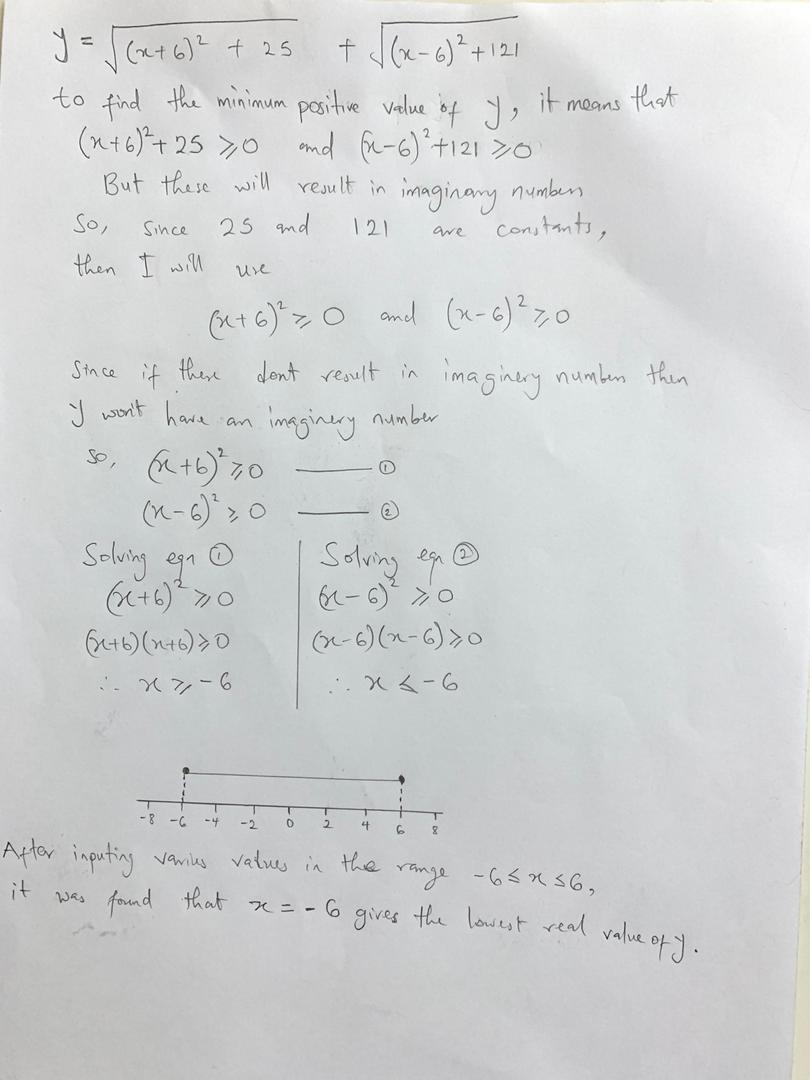 y = √((x+6)² + 25) + √((x-6)² + 121)
to find the minimum positive value of y, it means that
(x+6)² + 25 ⩾ 0 and (x-6)² + 121 ⩾ 0
But these will result in imaginary numbers
So, since 25 and 121 are constants,
then I will use
(x+6)² ⩾ 0 and (x-6)² ⩾ 0
Since if these dont result in imaginery numbers then
y won't have an imaginery number
So, (x+6)² ⩾ 0 ——— ①
(x-6)² ⩾ 0 ——— ②
Solving eqn ①
(x+6)² ⩾ 0
(x+6)(x+6) ⩾ 0
∴ x ⩾ -6
Solving eqn ②
(x-6)² ⩾ 0
(x-6)(x-6) ⩾ 0
∴ x ⩽ -6
-8 -6 -4 -2 0 2 4 6 8
After inputing varius values in the range -6 ≤ x ≤ 6,
it was found that x = -6 gives the lowest real value of y.